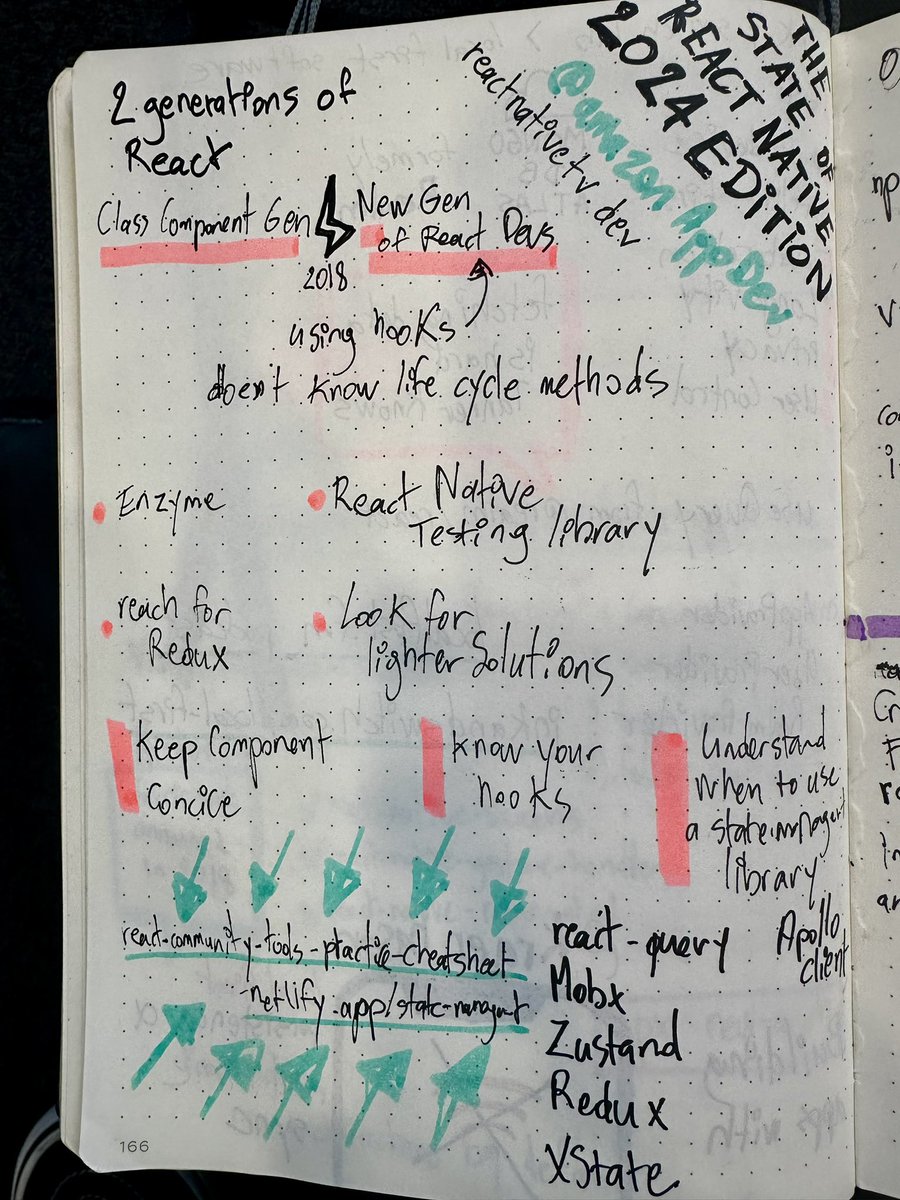 THE
STATE OF
REACT NATIVE
2024 EDITION
@amazon AppDev
reactnativetv.dev
2 generations of
React
Class Component Gen
New Gen
of React Devs
2018
using hooks
doen't know life cycle methods
Enzyme
React Native
Testing library
reach for
Redux
Look for
lighter Solutions
Keep Component
Concice
know your
hooks
Understand
when to use
a state managent
library
react-community-tools-practice-cheatsheet
.netlify.app/state-managent
react-query
Apollo
client
Mobx
Zustand
Redux
XState
166